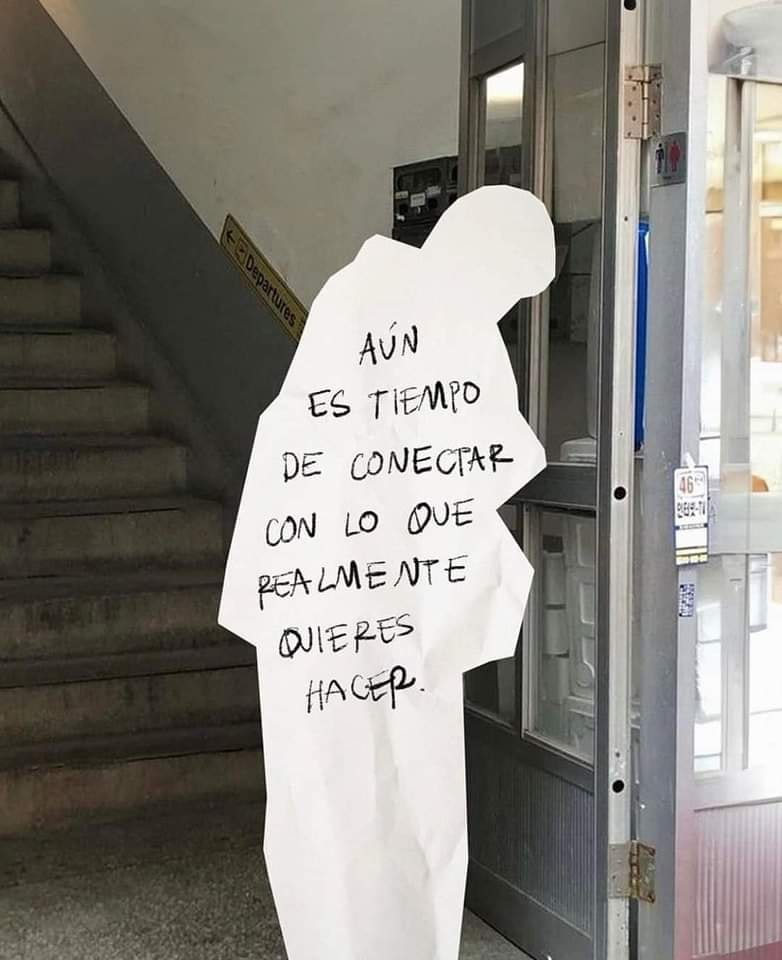 Departures
AÚN
ES TIEMPO
DE CONECTAR
CON LO QUE
REALMENTE
QUIERES
HACER.
46
인터넷+TV